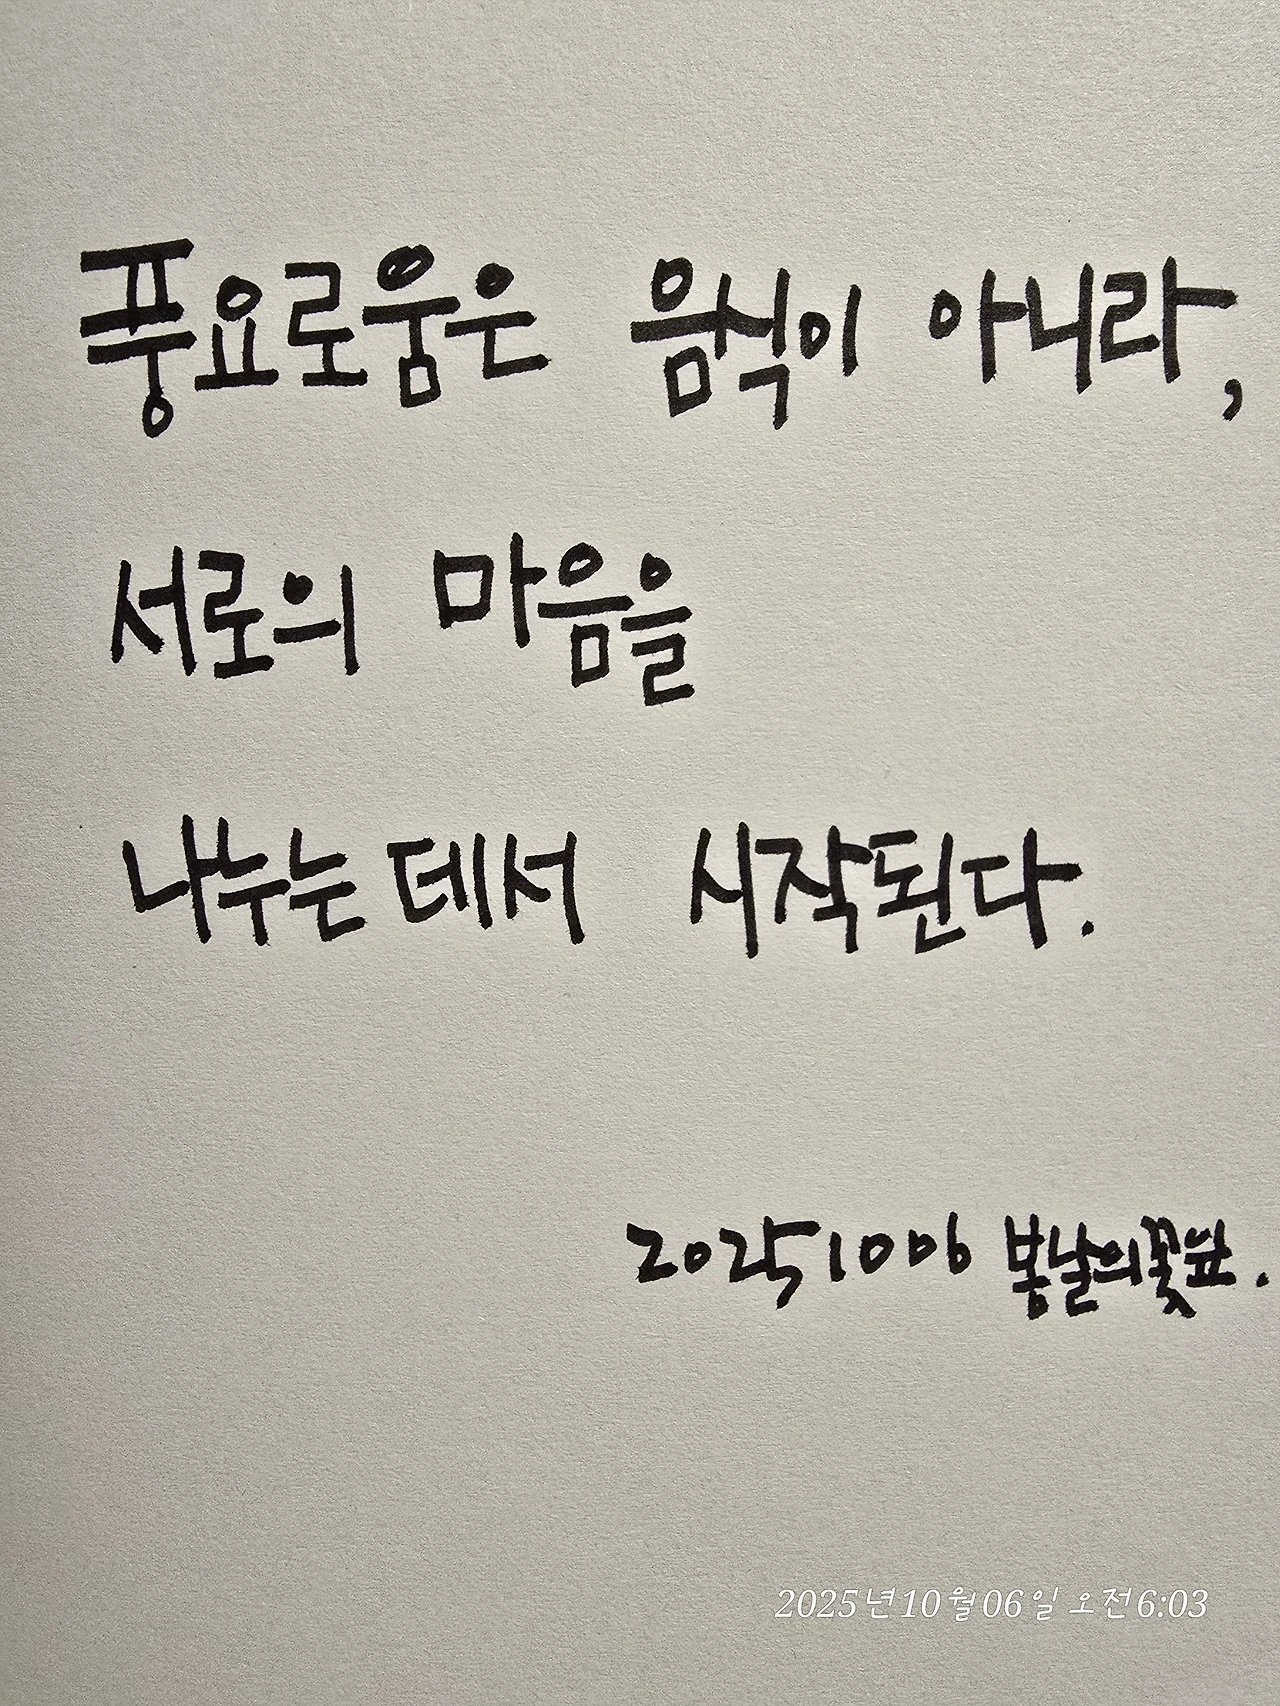 풍요로움은 음식이 아니라,
서로의 마음을
나누는데서 시작된다.
20251006 봄날의꽃잎.
2025년10월06일 오전6:03